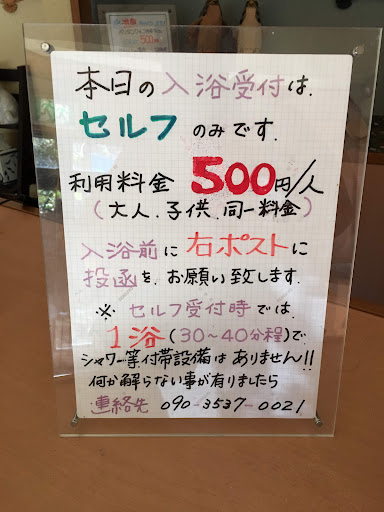 本日の入浴受付は.
セルフのみです.
利用料金 500円/人
(大人.子供.同一料金)
入浴前に右ポストに
投函を.お願い致します.
※ セルフ受付時では.
1浴(30~40分程)で
シャワー等付帯設備はありません!!
何か解らない事が有りましたら
連絡先 090-3537-0021